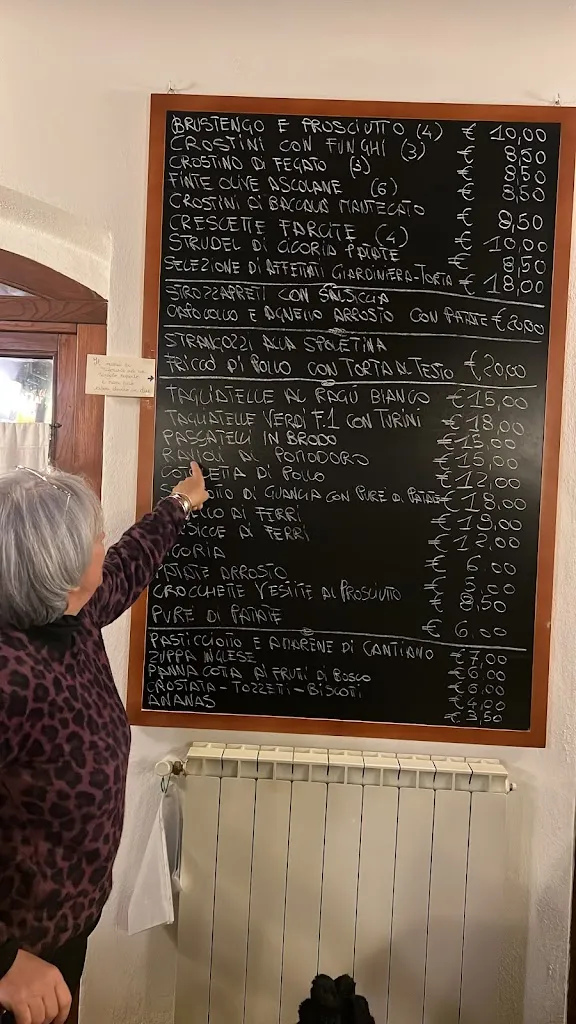 BRUSTENGO E PROSCIUTTO (4) € 10,00
CROSTINI CON FUNGHI (3) € 8,50
CROSTINO DI FEGATO (3) € 8,50
FINTE OLIVE ASCOLANE (6) € 8,50
CROSTINI DI BACCALÀ MANTECATO € 9,50
CRESCETTE FARCITE (4) € 10,00
STRUDEL DI CICORIA PATATE € 8,50
SELEZIONE DI AFFETTATI GIARDINIERA-TORTA € 18,00
STROZZAPRETI CON SALSICCIA
CAPOCOLLO E AGNELLO ARROSTO CON PATATE € 20,00
STRANGOZZI ALLA SPOLETINA
FRICCÒ DI POLLO CON TORTA AL TESTO € 20,00
TAGLIATELLE AL RAGÙ BIANCO € 15,00
TAGLIATELLE VERDI F.1 CON TURINI € 18,00
PASSATELLI IN BRODO € 15,00
RAVIOLI AL POMODORO € 15,00
DI POLLO € 12,00
DI GUANCIA CON PURÈ DI PATATE € 18,00
AI FERRI € 18,00
AI FERRI € 12,00
€ 6,00
PATATE ARROSTO € 5,00
CROCCHETTE VESTITE AL PROSCIUTTO € 8,50
PURÈ DI PATATE € 6,00
PASTICCIOTTO E AMARENE DI CANTIANO € 7,00
ZUPPA INGLESE € 6,00
PANNA COTTA AI FRUTTI DI BOSCO € 6,00
CROSTATA - TOZZETTI - BISCOTTI € 4,00
ANANAS € 3,50